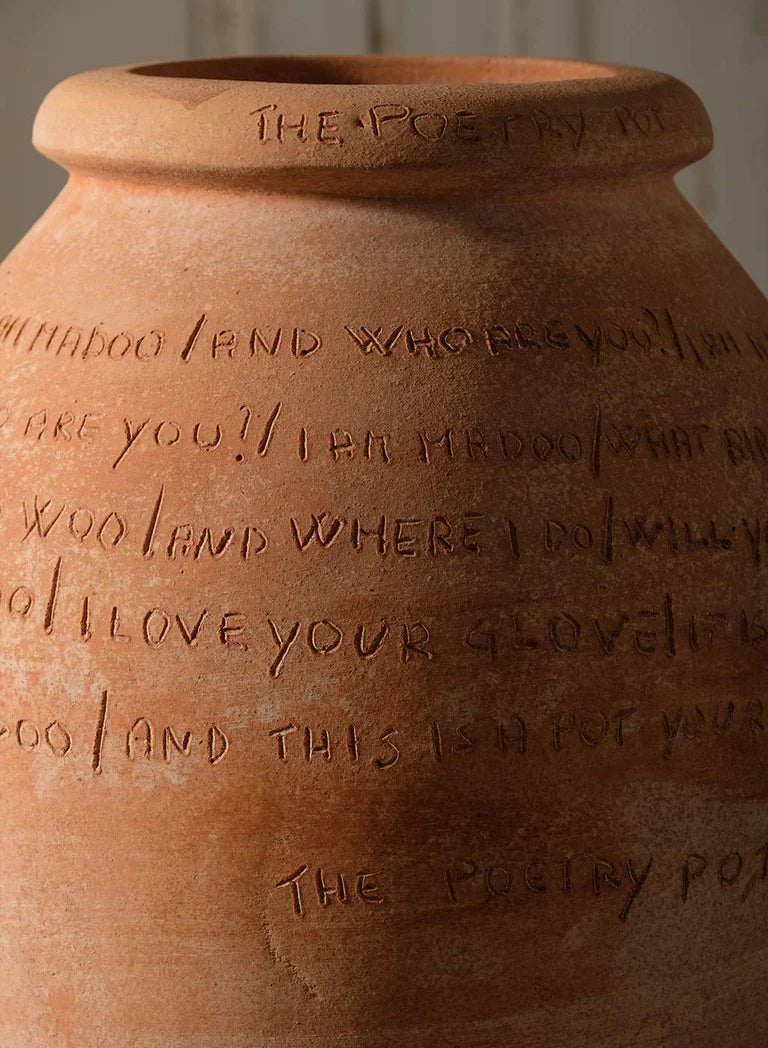 THE POETRY POT
MADOO / AND WHO ARE YOU? / I AM
ARE YOU? / I AM MADOO / WHAT
WOO / AND WHERE I DO / WILL
/ I LOVE YOUR GLOVE / IT IS
DOO / AND THIS IS A POT YOUR
THE POETRY POT